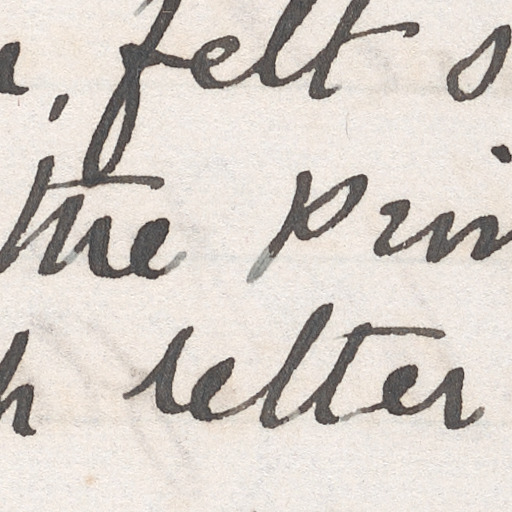 , felt s
the prin
h letter